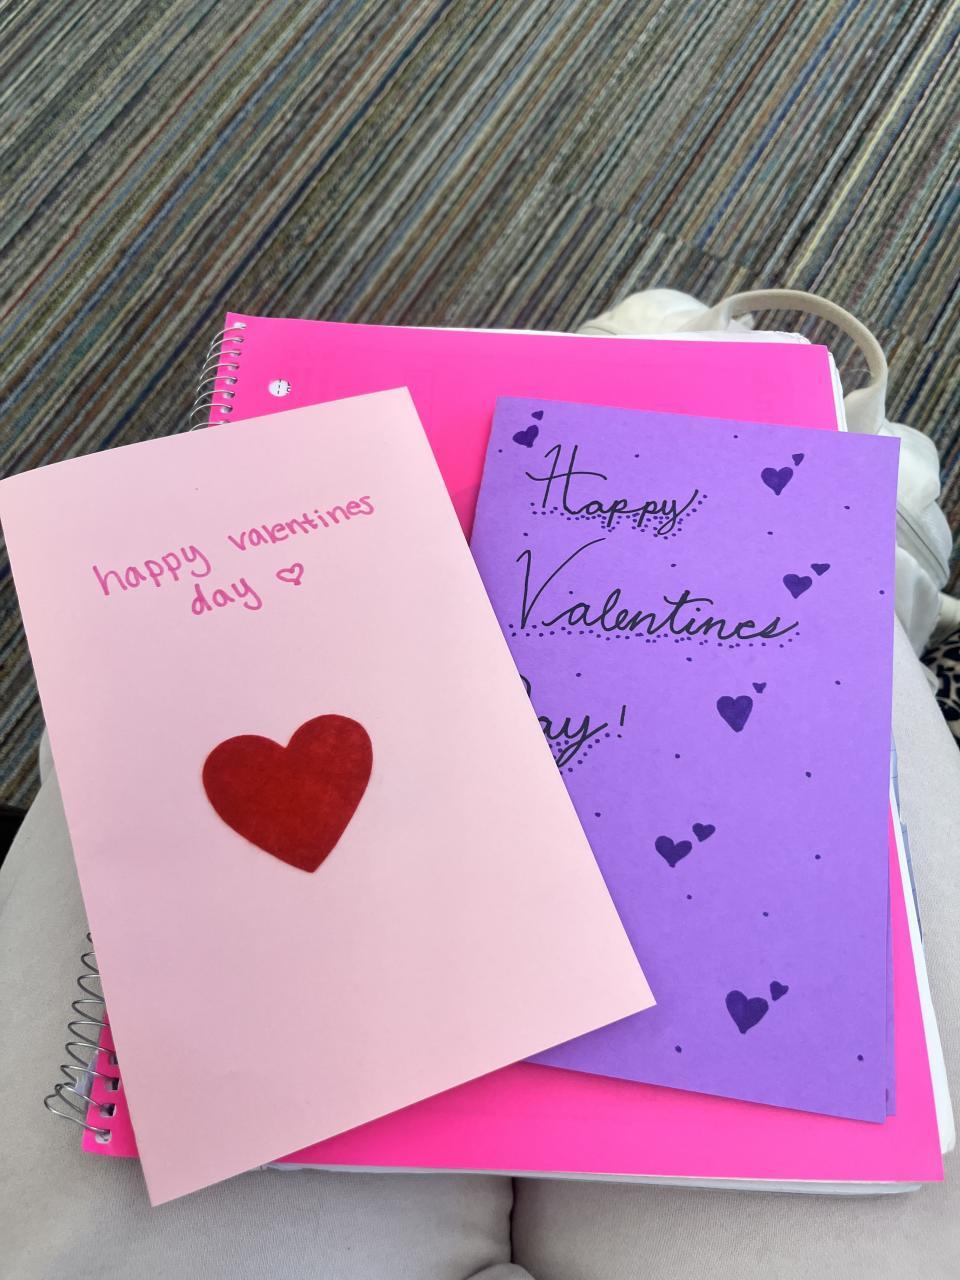 happy valentines
day ♡
Happy
Valentines
Day!